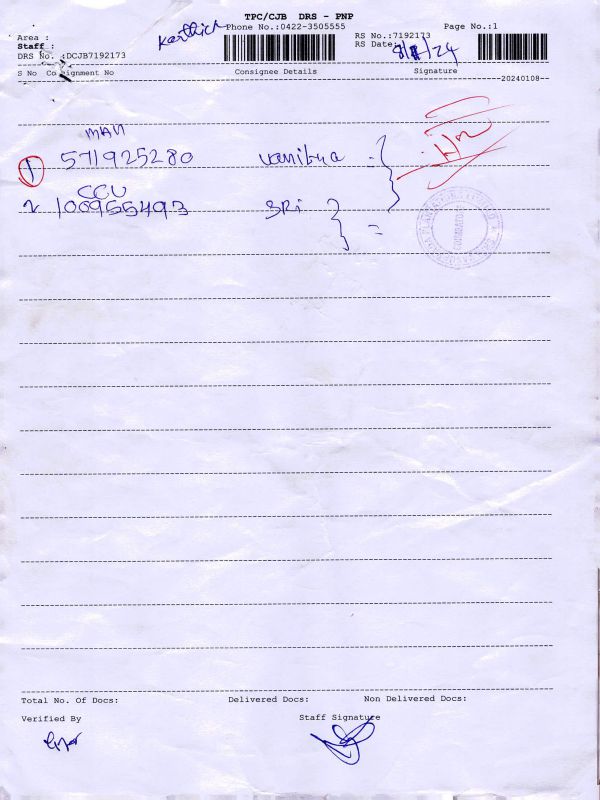 TPC/CJB DRS - PNP
Karthick Phone No.:0422-3505555 Page No.:1
Area :
RS No.:7192173
Staff :
RS Date: 8/1/24
DRS No. :DCJB7192173
S No Consignment No Consignee Details Signature
--20240108--
MAN
1 571925280
CCU
2 100955493 SRi
Total No. Of Docs: Delivered Docs: Non Delivered Docs:
Verified By Staff Signature